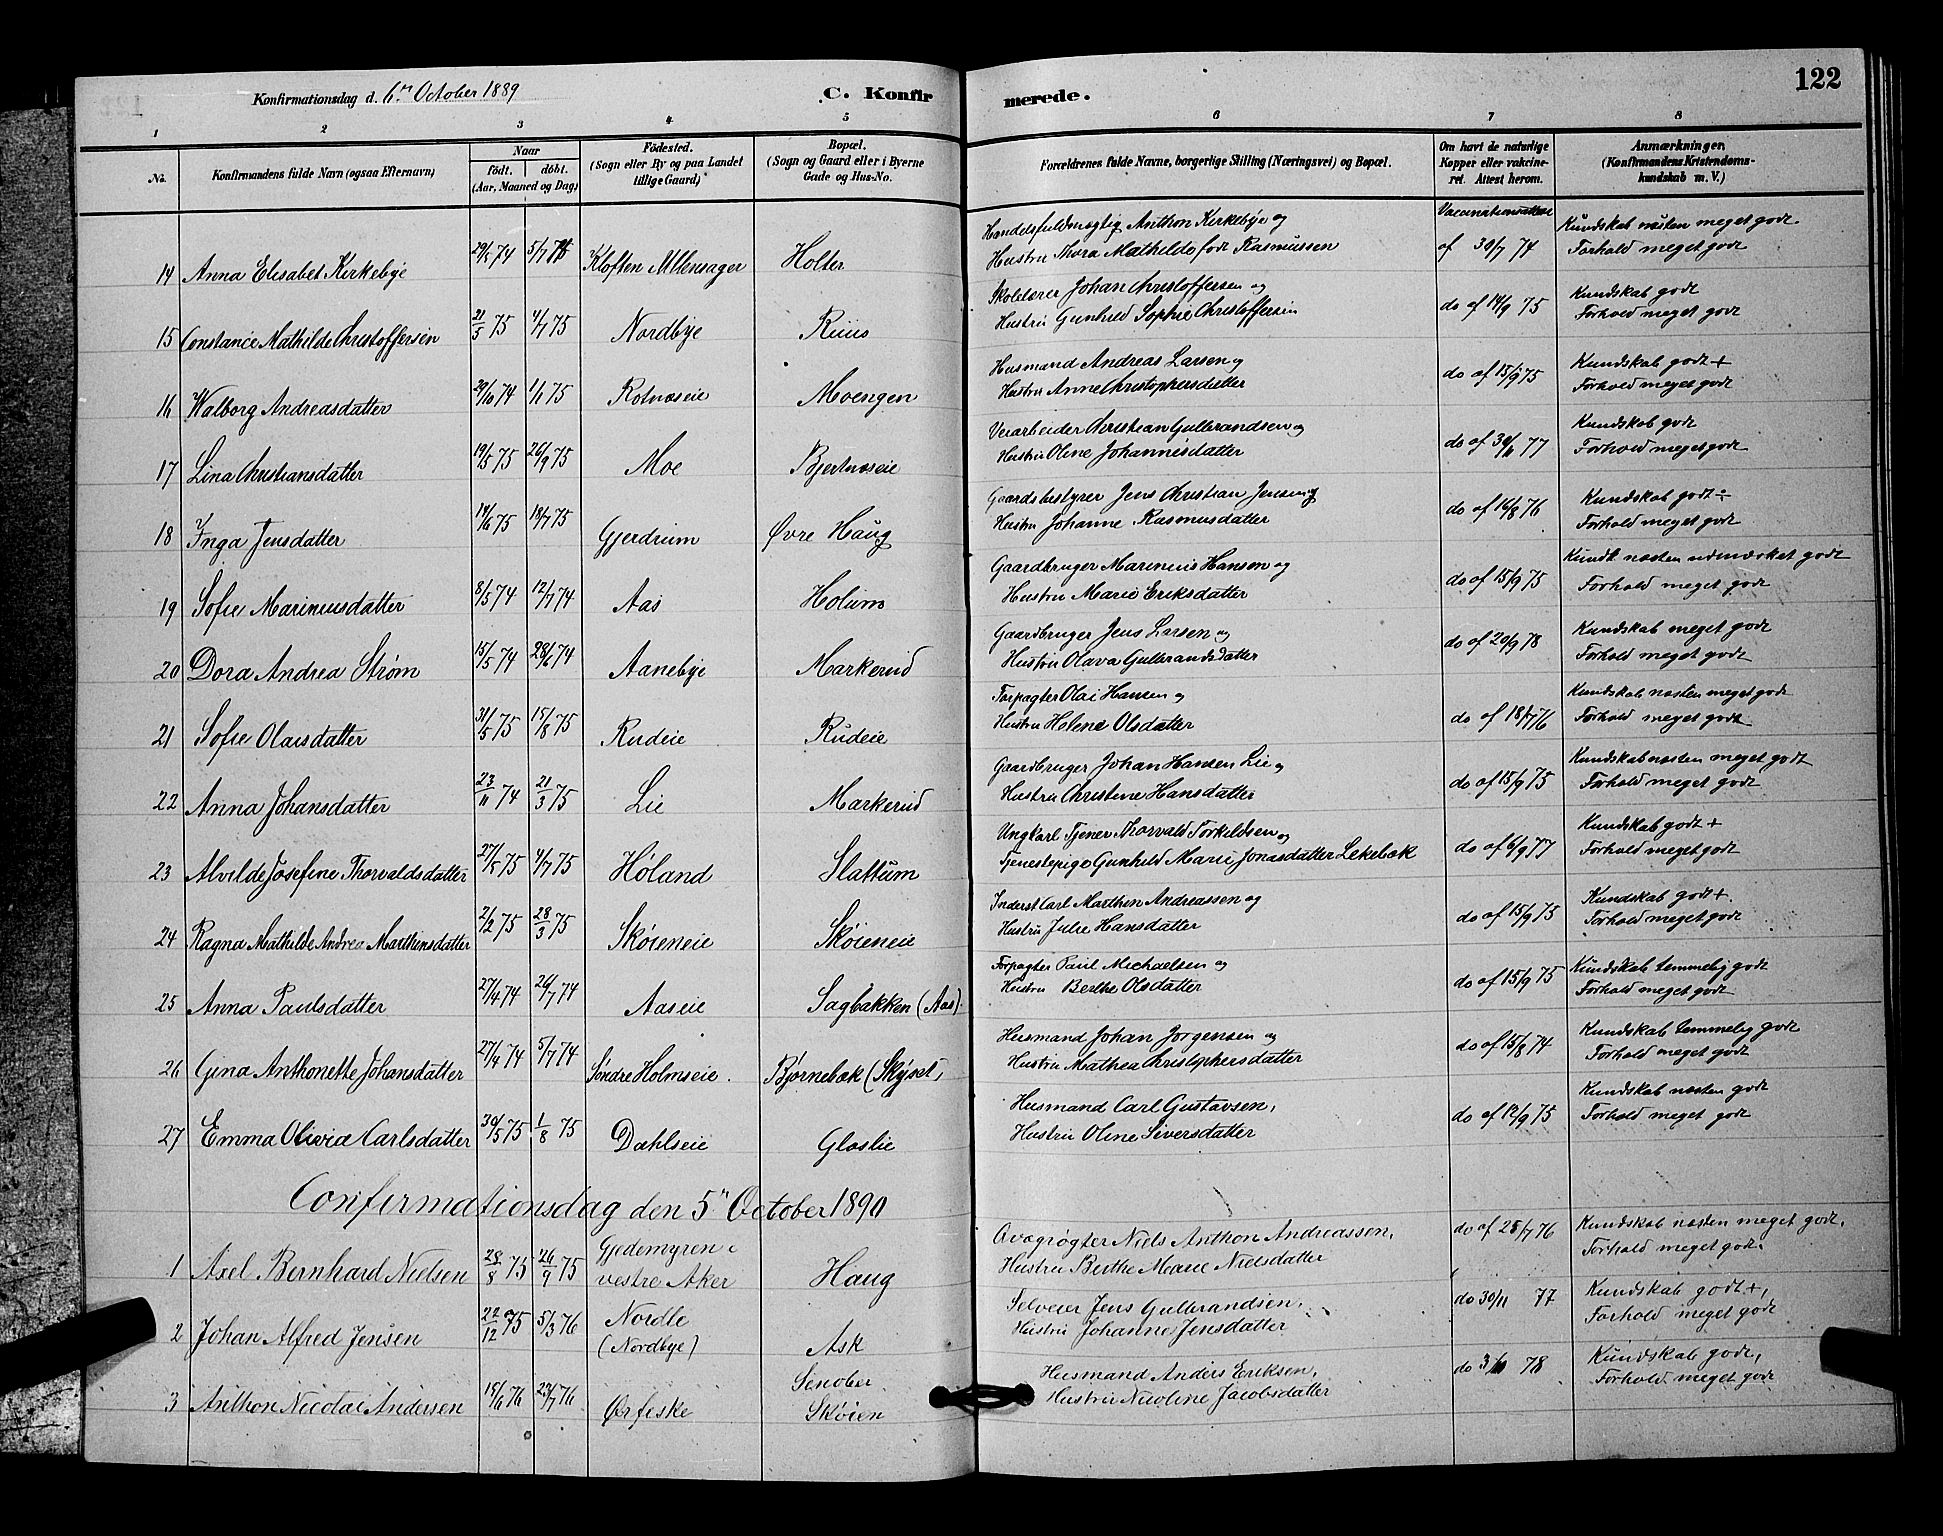 Konfirmationsdag d. 6te October 1889 C. Konfirmerede. 122
1 2 3 4 5 6 7 8
No. Konfirmandens fulde Navn (ogsaa Efternavn) Naar født. døbt. (Aar, Maaned og Dag) Födested. (Sogn eller By og paa Landet tillige Gaard) Bopæl. (Sogn og Gaard eller i Byerne Gade og Hus-No. Forældrenes fulde Navne, borgerlige Stilling (Næringsvei) og Bopæl. Om havt de naturlige Kopper eller vakcineret. Attest herom. Anmærkninger (Konfirmandens Kristendomskundskab m. V.)
14 Anna Elisabet Kirkebye 29/5 74 5/7 74 Kloften Ullensager Holter Handelsfuldmægtig Anthon Kirkebye og Hustru Thora Mathilde født Rasmussen Vaccinationsattest af 30/7 74 Kundskab næsten meget godt. Forhold meget godt
15 Constance Mathilde Christoffersen 21/3 75 4/7 75 Nordbye Ruus Skolelærer Johan Christoffersen og Hustru Gunhild Sophie Christoffersen do af 14/9 75 Kundskab godt Forhold meget godt
16 Walborg Andreasdatter 29/10 74 1/1 75 Rotnæseie Moengen Husmand Andreas Larsen og Hustru Anne Christophersdatter do af 15/9 75 Kundskab godt + Forhold meget godt
17 Lina Christiansdatter 19/5 75 26/9 75 Moe Bjertnæseie Veiarbeider Christian Gulbrandsen og Hustru Oline Johannesdatter do af 77 Kundskab godt Forhold meget godt
18 Inga Jensdatter 14/6 75 18/7 75 Gjerdrum Øvre Haug Gaardsbestyrer Jens Christian Jensen og Hustru Johanne Rasmusdatter do af 16/8 76 Kundskab godt ÷ Forhold meget godt
19 Sofie Marinusdatter 8/5 74 12/7 74 Aas Holum Gaardbruger Marinius Hansen og Hustru Marie Eriksdatter do af 15/9 75 Kundt næsten udmærket godt Forhold meget godt
20 Dora Andrea Strøm 15/5 74 28/6 74 Aanebye Markerud Gaardbruger Jens Larsen og Hustru Olava Gulbrandsdatter do af 20/9 78 Kundskab meget godt Forhold meget godt
21 Sofie Olaisdatter 31/5 75 15/8 75 Rudeie Rudeie Forpagter Olai Hansen og Hustru Helene Olsdatter do af 18/7 76 Kundskab næsten meget godt Forhold meget godt
22 Anna Johansdatter 23/11 74 21/3 75 Lie Markerud Gaardbruger Johan Hansen Lie og Hustru Christine Hansdatter do af 15/9 75 Kundskab næsten meget godt Forhold meget godt
23 Alvilde Josefine Thorvaldsdatter 27/5 75 4/7 75 Høland Slattum Ungkarl Tjener Thorvald Torkildsen og Tjenestepige Gunhild Marie Jonasdatter Lekebæk do af 6/9 77 Kundskab godt + Forhold meget godt
24 Ragna Mathilde Andrea Marthinsdatter 2/2 75 28/3 75 Skøieneie Skøieneie Inderst Carl Marthin Andreassen og Hustru Julie Hansdatter do af 15/9 75 Kundskab godt +. Forhold meget godt
25 Anna Paulsdatter 27/4 74 26/7 74 Aaseie Sagbakken (Aas). Forpagter Paul Michaelsen og Hustru Berthe Olsdatter do af 15/9 75 Kundskab temmelig godt Forhold meget godt
26 Gina Anthonette Johansdatter 27/4 74 5/7 74 Søndre Holmseie. Bjørnebæk (Skyset) Husmand Johan Jørgensen og Hustru Mathea Christophersdatter do af 15/8 74 Kundskab temmelig godt Forhold meget godt
27 Emma Olivia Carlsdatter 30/5 75 1/8 75 Dahlseie Glaslie Husmand Carl Gustavsen, Hustru Oline Siversdatter do af 12/9 75 Kundskab næsten godt Forhold meget godt
Confirmationsdag den 5te October 1890
1 Axel Bernhard Nielsen 28/8 75 26/9 75 Gjedemyren i vestre Aker Haug Avagrøgter Niels Anthon Andreassen, Hustru Berthe Marie Nielsdatter do af 25/7 76 Kundskab næsten meget godt. Forhold meget godt.
2 Johan Alfred Jensen 22/12 75 5/3 76 Nordle (Nordbye) Ask Selveier Jens Gulbrandsen, Hustru Johanne Jensdatter do 30/11 77 Kundskab godt +, Forhold meget godt
3 Anthon Nicolai Andersen 15/6 76 23/7 76 Ørfiske Senober Skøien Husmand Anders Eriksen, Hustru Nicoline Jacobsdatter do 78 Kundskab godt, Forhold meget godt